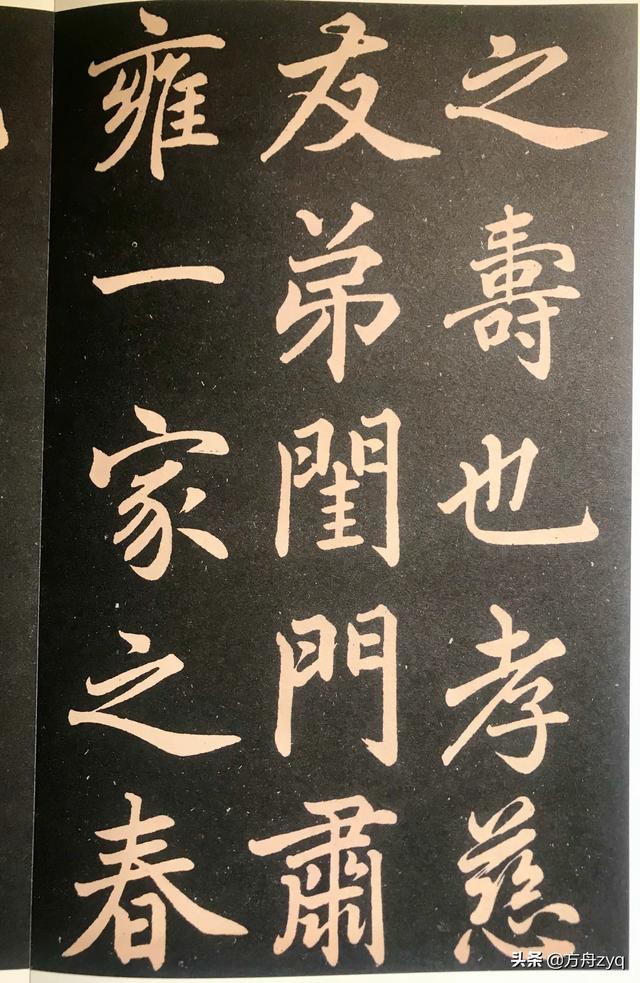 之壽也孝慈
友弟閨門肅
雍一家之春
头条 @方舟zyq